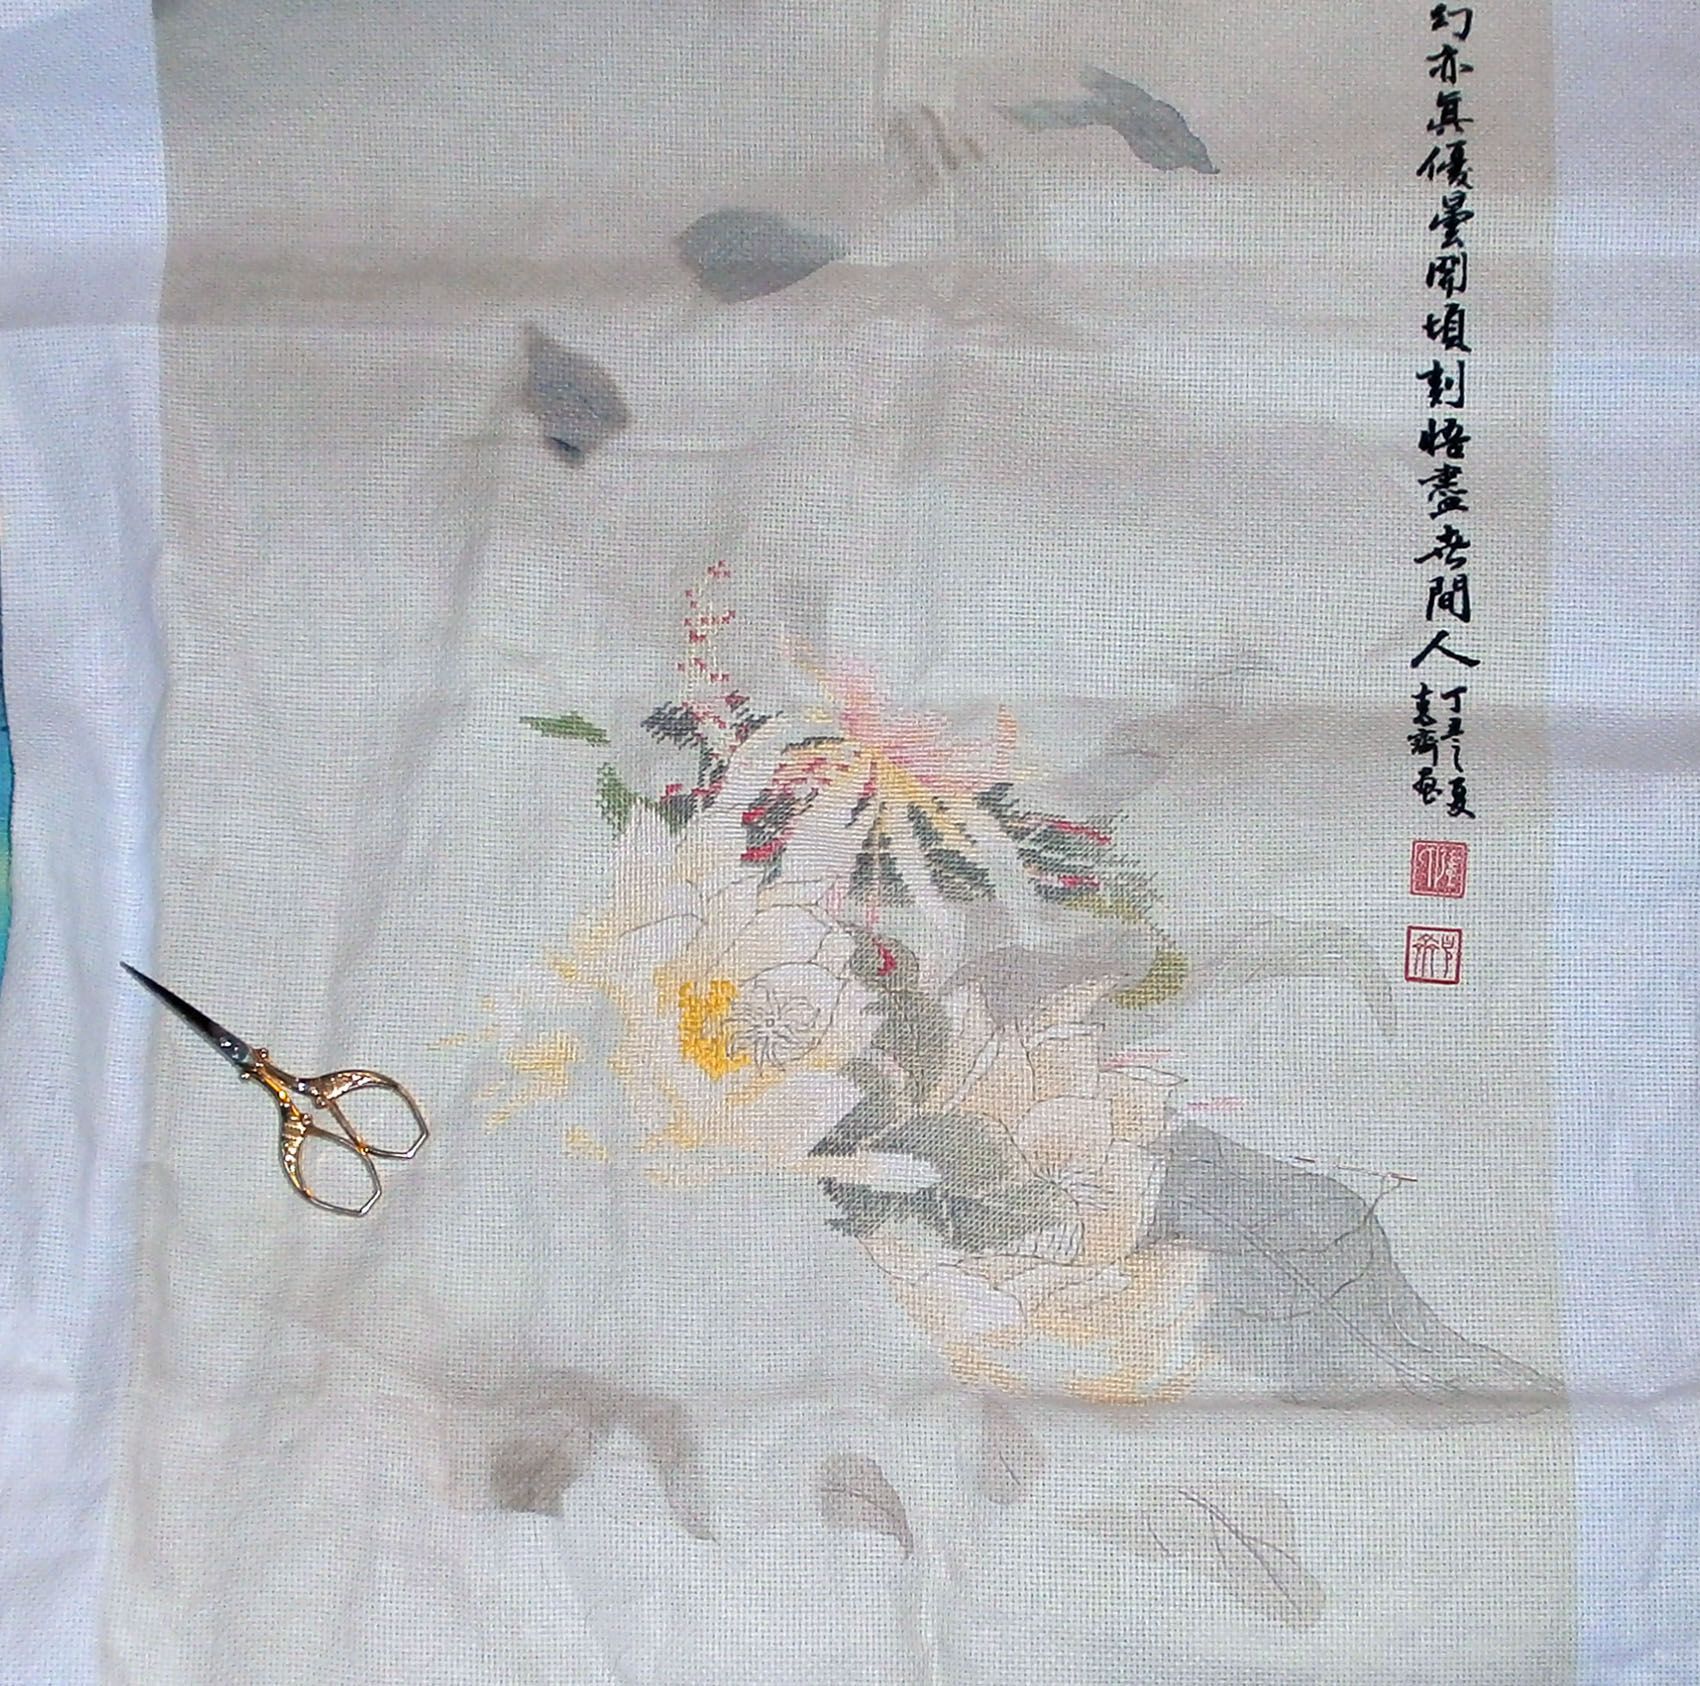 幻亦眞優曇開頃刻悟盡世間人
丁丑之夏
克齊畫